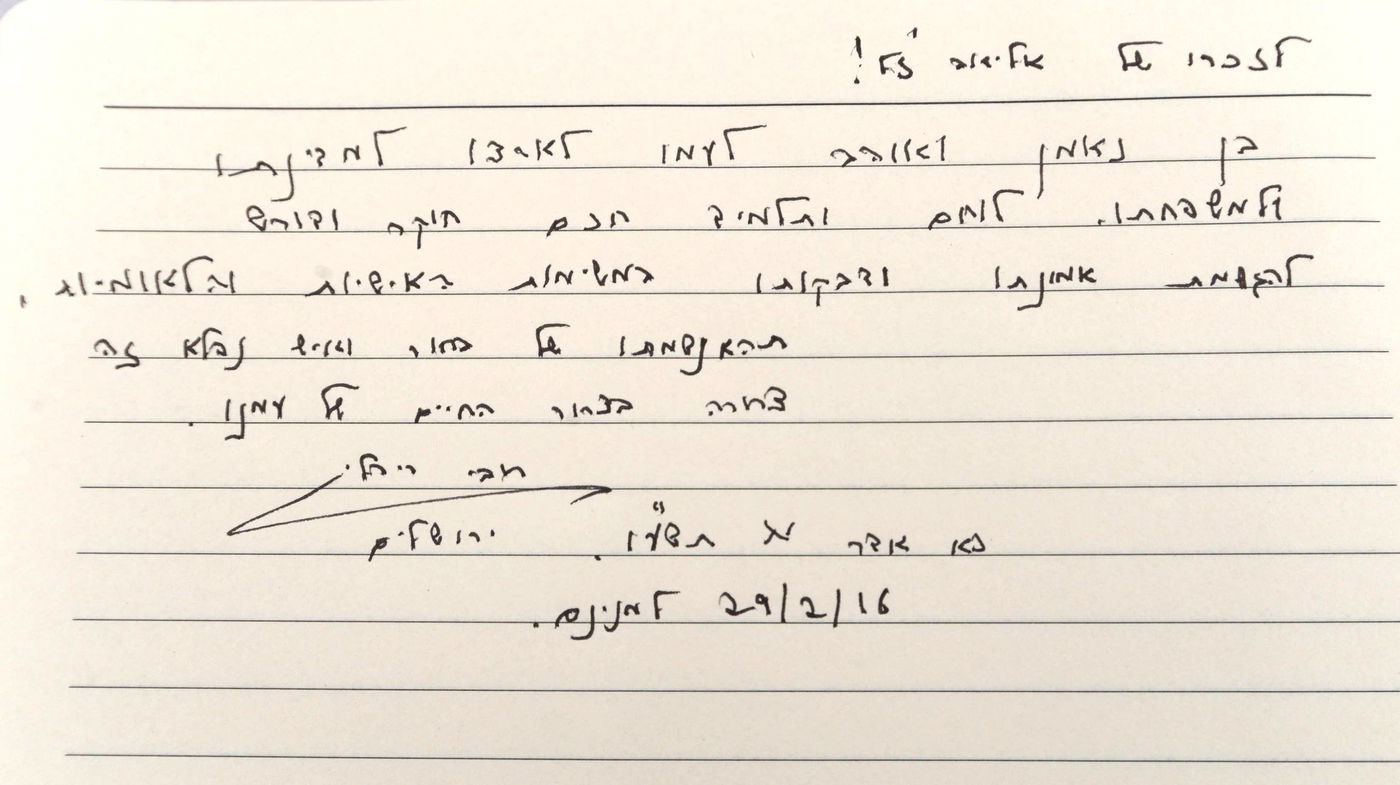 לזכרו של אליאב ז"ל!
בן נאמן ואוהב לעמו לארצו למדינתו
ולמשפחתו. לוחם ותלמיד חכם חוקר ודורש
להגשמת אמונתו ודבקותו במשימות האישיות והלאומיות,
תהא נשמתו של בחור ואיש נפלא זה
צרורה בצרור החיים של עמנו.
צבי
כא אדר א תשע"ו. ירושלים
29/2/16 למנינם.